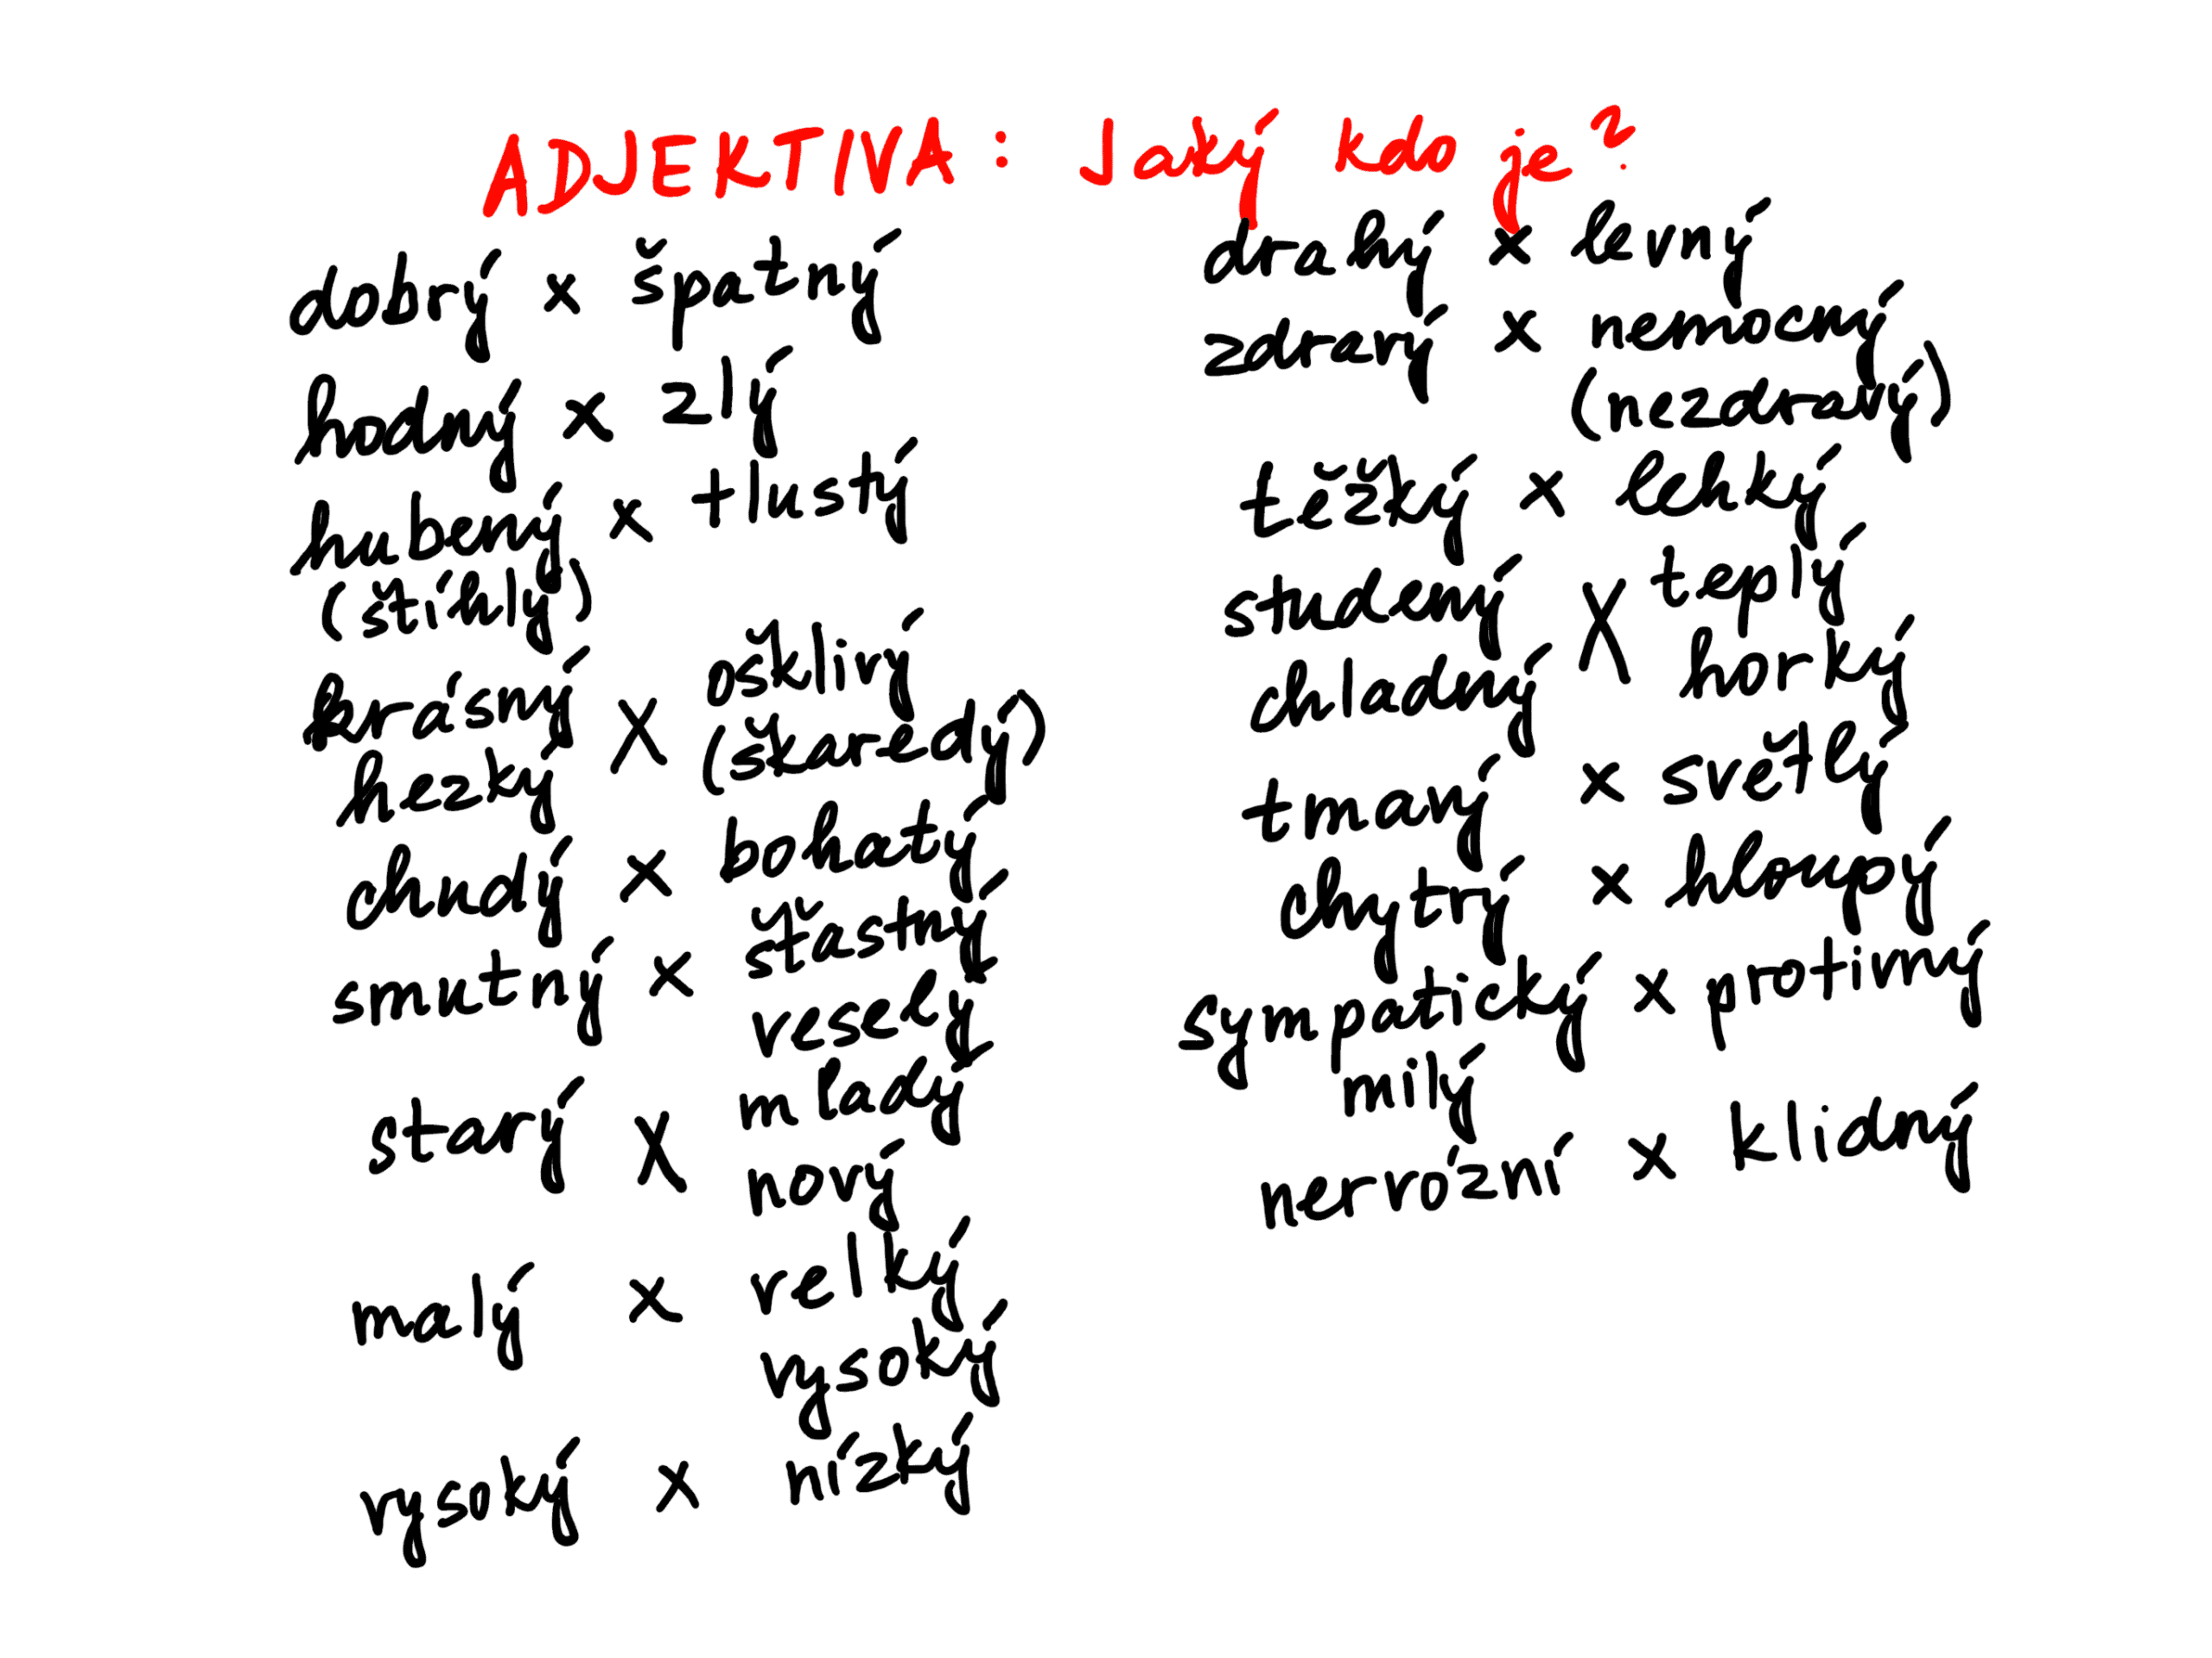 ADJEKTIVA: Jaký kdo je?
dobrý x špatný
hodný x zlý
hubený x tlustý
(štíhlý)
krásný x ošklivý
hezký (škaredý)
chudý x bohatý
smutný x šťastný
veselý
starý x mladý
nový
malý x velký
vysoký
vysoký x nízký
drahý x levný
zdravý x nemocný
(nezdravý)
těžký x lehký
studený x teplý
chladný horký
tmavý x světlý
chytrý x hloupý
sympatický x protivný
milý
nervózní x klidný